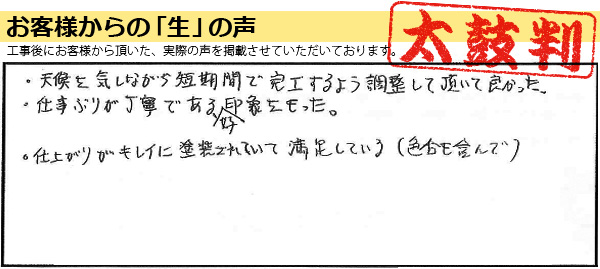 お客様からの「生」の声
工事後にお客様から頂いた、実際の声を掲載させていただいております。
太鼓判
・天候を気しながら短期間で完工するよう調整して頂いて良かった。
・仕事ぶりが丁寧である好印象をもった。
・仕上がりがキレイに塗装されていて満足している(色合を含んで)